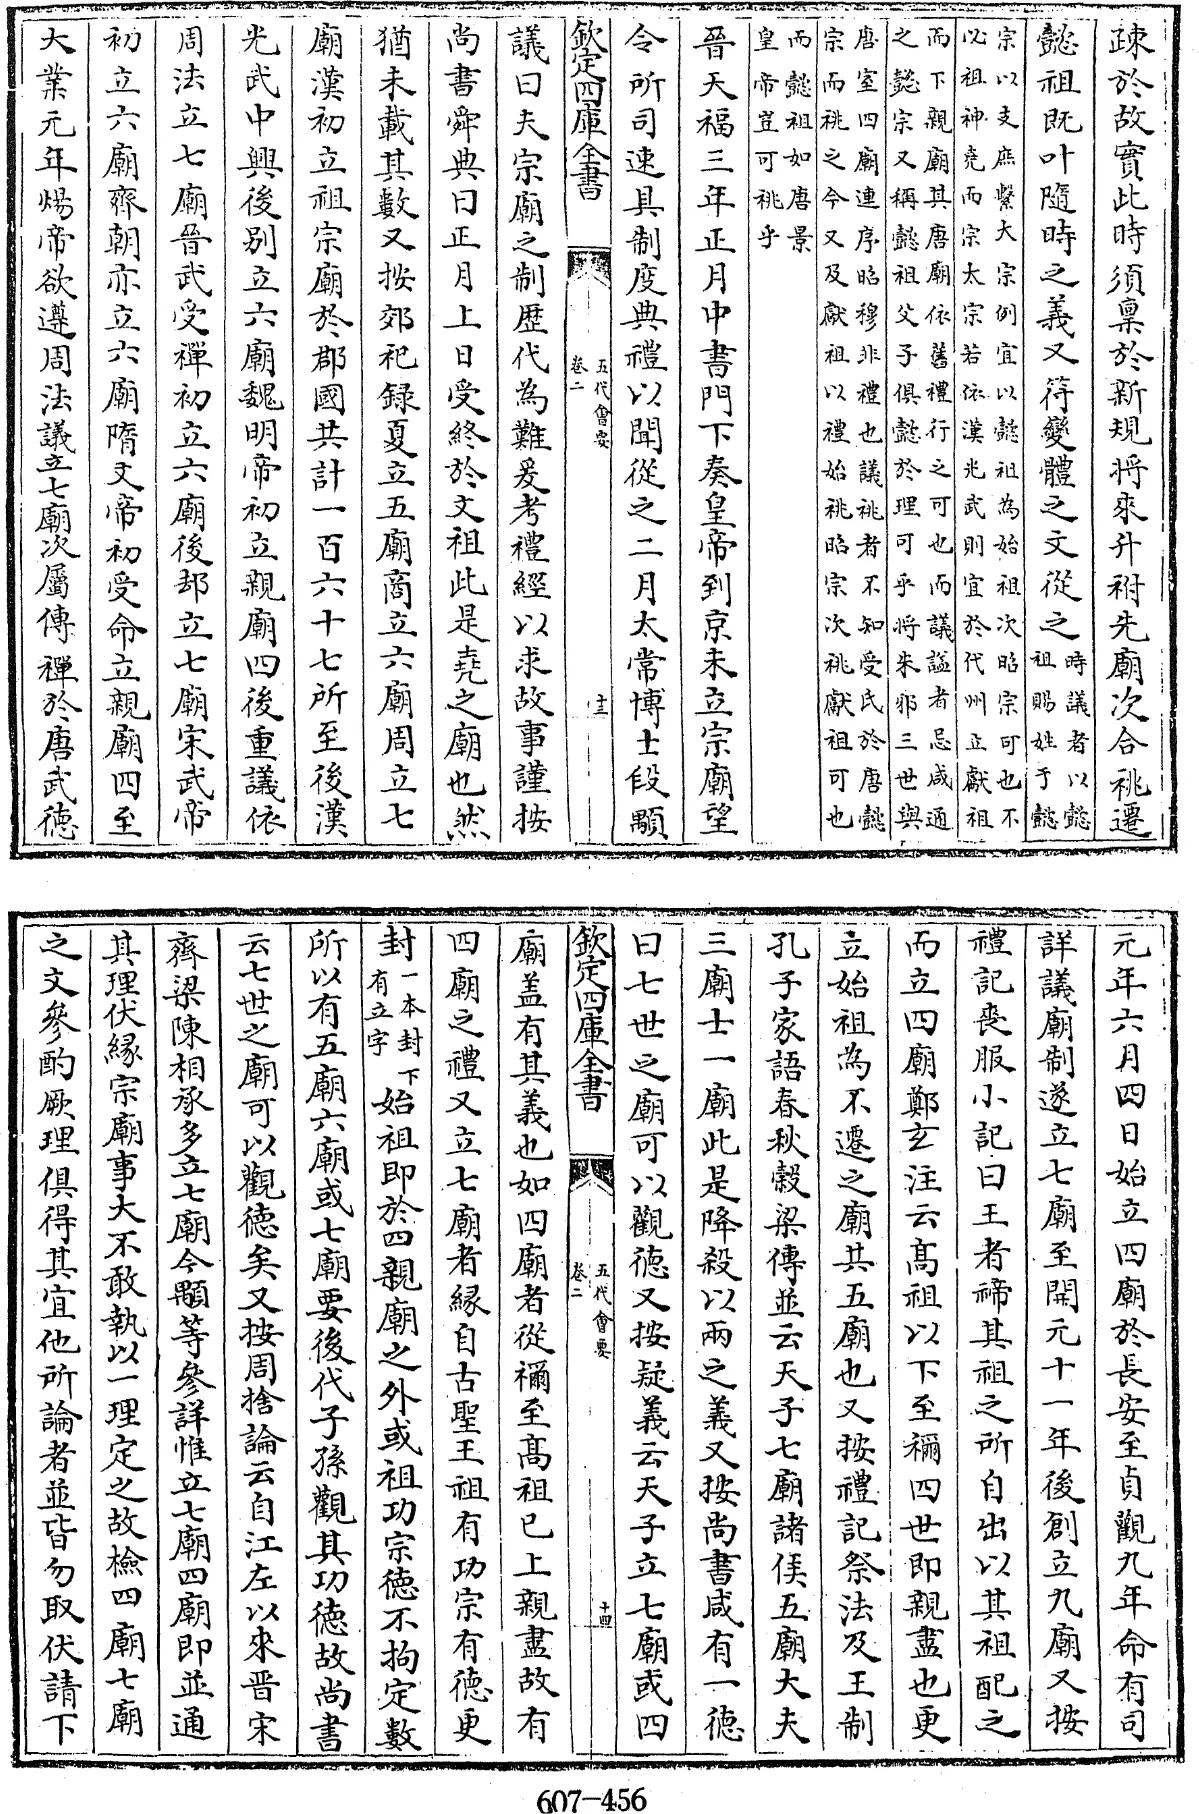 疎於故實此時須稟於新規將來升祔先廟次合祧遷
懿祖既叶隨時之義又符變體之文從之
時議者以懿
祖賜姓于懿
宗以支庶繫大宗例宜以懿祖為始祖次昭宗可也不
以祖神堯而宗太宗若依漢光武則宜於代州立獻祖
而下親廟其唐廟依舊禮行之可也而議謚者忌咸通
之懿宗又稱懿祖父子俱懿於理可乎將朱邪三世與
唐室四廟連序昭穆非禮也議祧者不知受氏於唐懿
宗而祧之今又及獻祖以禮始祧昭宗次祧獻祖可也
而懿祖如唐景
皇帝豈可祧乎
晉天福三年正月中書門下奏皇帝到京未立宗廟望
令所司速具制度典禮以聞從之二月太常博士段顒
欽定四庫全書
五代會要
卷二
十三
議曰夫宗廟之制歴代為難爰考禮經以求故事謹按
尚書舜典曰正月上日受終於文祖此是堯之廟也然
猶未載其數又按郊祀録夏立五廟商立六廟周立七
廟漢初立祖宗廟於郡國共計一百六十七所至後漢
光武中興後别立六廟魏明帝初立親廟四後重議依
周法立七廟晉武受禪初立六廟後却立七廟宋武帝
初立六廟齊朝亦立六廟隋文帝初受命立親廟四至
大業元年煬帝欲遵周法議立七廟次屬傳禪於唐武德
元年六月四日始立四廟於長安至貞觀九年命有司
詳議廟制遂立七廟至開元十一年後創立九廟又按
禮記喪服小記曰王者禘其祖之所自出以其祖配之
而立四廟鄭玄注云髙祖以下至禰四世即親盡也更
立始祖為不遷之廟共五廟也又按禮記祭法及王制
孔子家語春秋榖梁傳並云天子七廟諸侯五廟大夫
三廟士一廟此是降殺以兩之義又按尚書咸有一德
曰七世之廟可以觀德又按疑義云天子立七廟或四
欽定四庫全書
五代會要
卷二
十四
廟盖有其義也如四廟者從禰至髙祖已上親盡故有
四廟之禮又立七廟者緣自古聖王祖有功宗有德更
封
一本封下
有立字
始祖即於四親廟之外或祖功宗德不拘定數
所以有五廟六廟或七廟要後代子孫觀其功德故尚書
云七世之廟可以觀德矣又按周捨論云自江左以來晉宋
齊梁陳相承多立七廟今顒等參詳惟立七廟四廟即並通
其理伏緣宗廟事大不敢執以一理定之故檢四廟七廟
之文參酌厥理俱得其宜他所論者並皆勿取伏請下
607-456